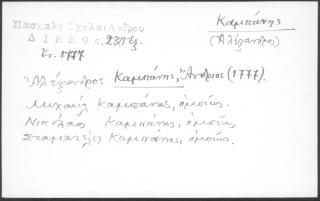 Πασχάλη Σχολαὶ Ἄνδρου
Δ Ι Ε Ε Θ σ. 237 ἑξ.
Ἔτ. 1777
Καμπάνης
(Ἀλέξανδρος)
Ἀλέξανδρος Καμπάνης, Ἄνδριος (1777).
Μιχαήλ Καμπάνης, ὁμοίως.
Νικόλαος Καμπάνης, ὁμοίως.
Σταματέλος Καμπάνης, ὁμοίως.